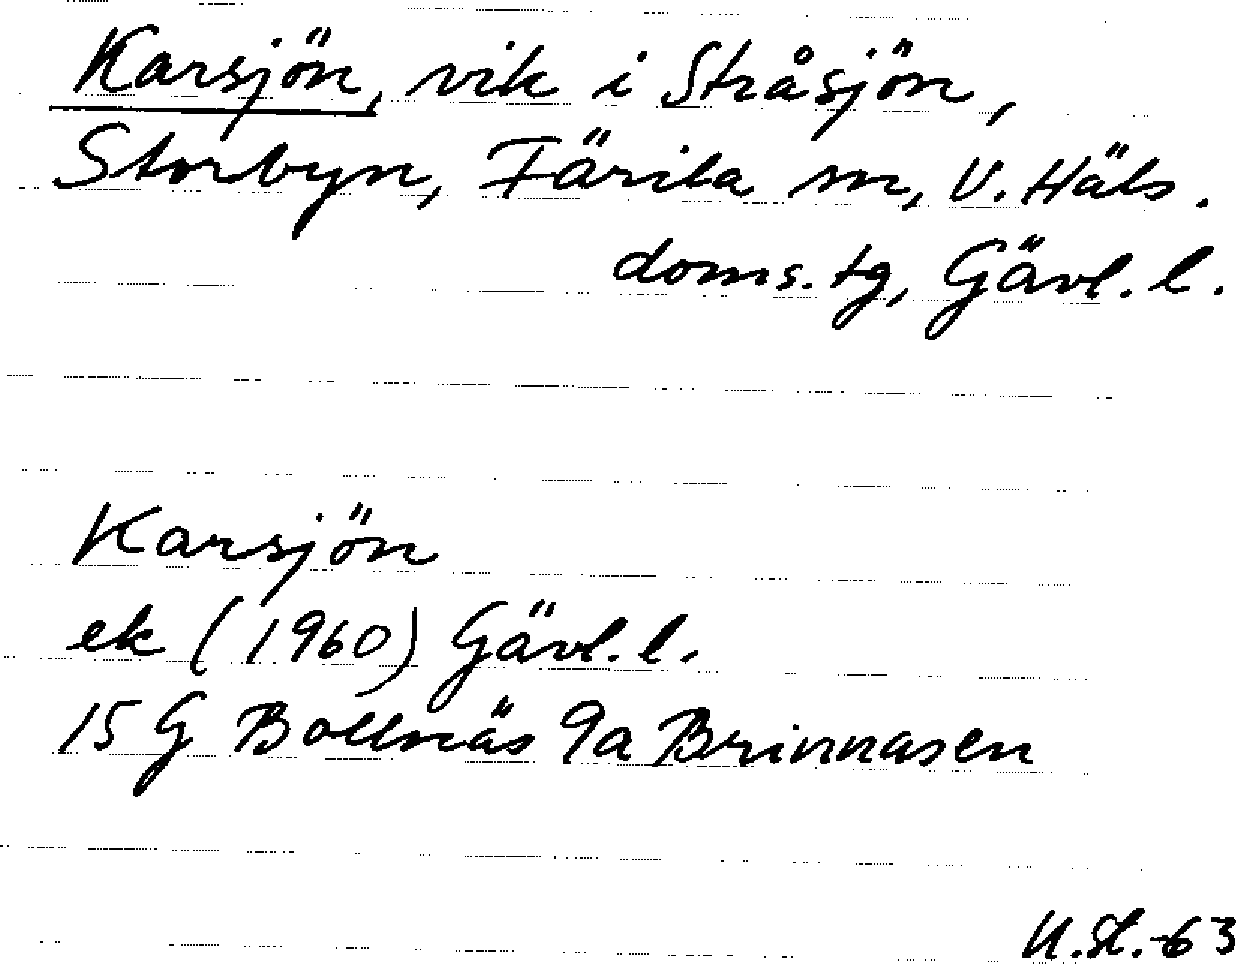 Karsjön, vik i Stråsjön,
Storbyn, Färila sn, V. Häls.
doms. tg, Gävl. l.
Karsjön
ek (1960) Gävl. l.
15 G Bollnäs 9a Brinnåsen
U.St.-63